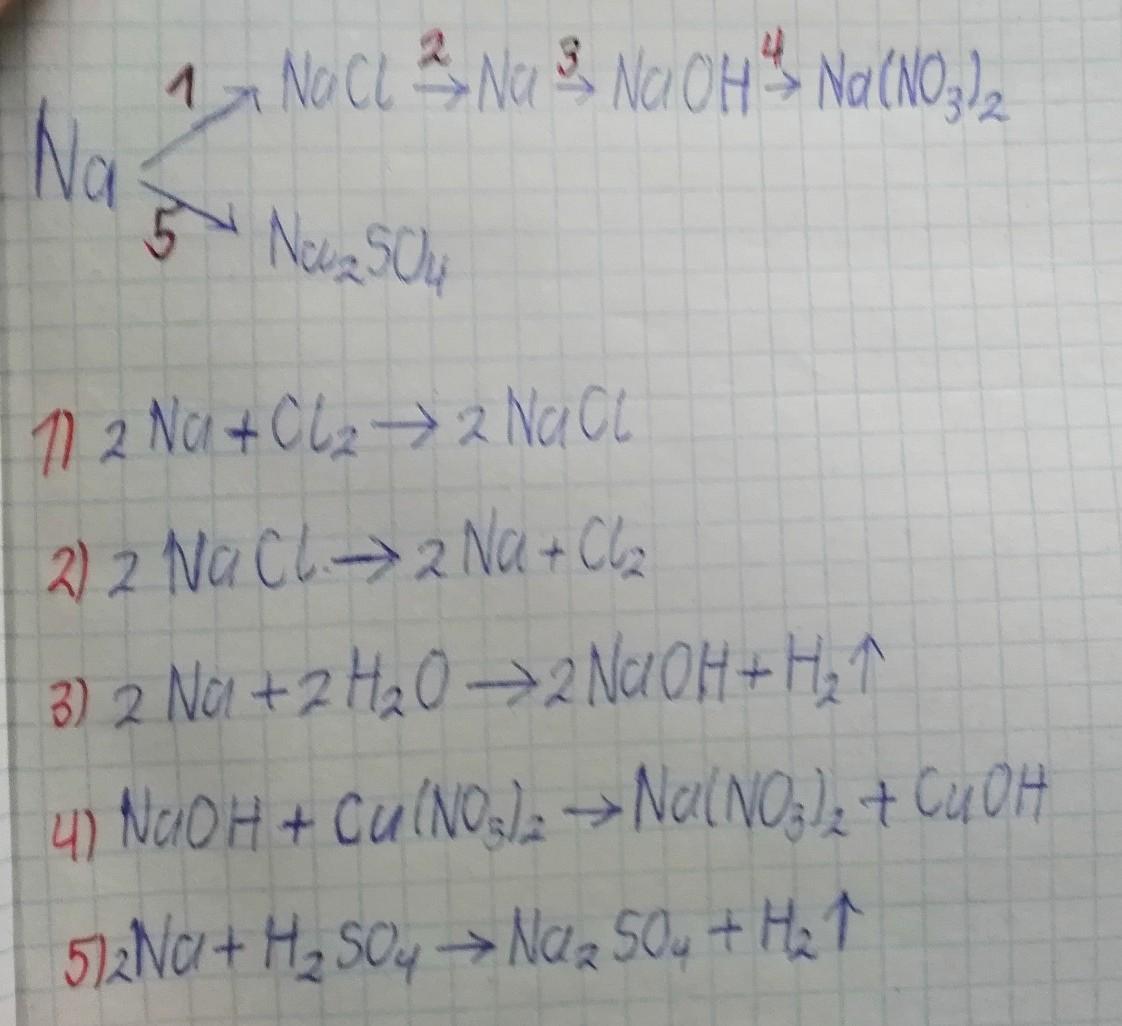 1 NaCl 2→ Na 3→ NaOH 4→ Na(NO₃)₂
Na
5 Na₂SO₄
1) 2 Na + Cl₂ → 2 NaCl
2) 2 NaCl → 2 Na + Cl₂
3) 2 Na + 2 H₂O → 2 NaOH + H₂↑
4) NaOH + Cu(NO₃)₂ → Na(NO₃)₂ + CuOH
5) 2Na + H₂SO₄ → Na₂SO₄ + H₂↑